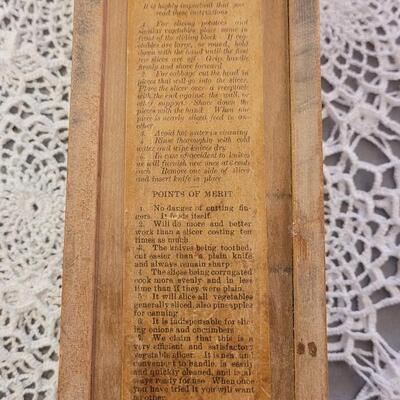 It is highly important that you
read these instructions
1. For slicing potatoes and
similar vegetables place same in
front of the sliding block. If veg-
etables are large, or round, hold
down with the hand until the first
few slices are off. Grip handle
firmly and shove forward
2. For cabbage cut the head in
pieces that will go in the slicer.
Place the slicer over a receptacle
with the end against the wall, or
other support. Shove down the
pieces with the hand. When one
piece is nearly sliced feed in an-
other
3. Avoid hot water in cleaning
4. Rinse thoroughly with cold
water and wipe knives dry.
5. In case of accident to knives
we will furnish new ones at 5 cents
each. Remove one side of slicer
and insert knife in place
POINTS OF MERIT
1. No danger of cutting fin-
gers. It feeds itself.
2. Will do more and better
work than a slicer costing ten
times as much.
3. The knives being toothed,
cut easier than a plain knife
and always remain sharp.
4. The slices being corrugated
cook more evenly and in less
time than if they were plain.
5. It will slice all vegetables
generally sliced, also pineapples
for canning.
6. It is indispensable for slic-
ing onions and cucumbers.
7. We claim that this is a
very efficient and satisfactory
vegetable slicer. It is new,
convenient to handle, is easily
and quickly cleaned, and is al-
ways ready for use. When once
you have tried it you will want
no other